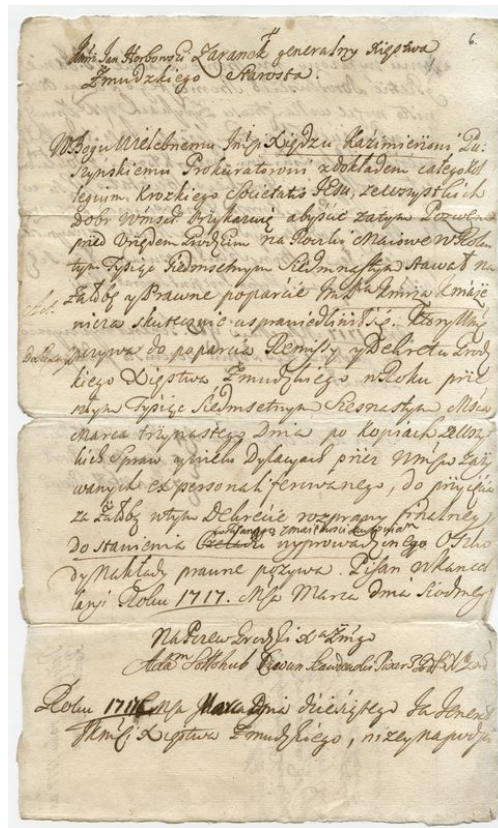 6.
Jan Horbowski Zaranek generalny Xięstwa
Żmudzkiego Starosta.
W Bogu Wielebnemu Imści Xiędzu Kazimierzowi Pu-
szynskiemu Prokuratorowi z dokładem całego Kol
legium Krozkiego Societatis Jesu, ze wszystkich
dobr Wmsci Przykazuię abyście za tym Pozwem
przed Urzędem Grodzkim na Roczki Maiowe w Roku
tym Tysiąc Siedmsetnym Siedmnastym stawał na
Żałobę y Prawne poparcie
skutecznie usprawiedliwił się. Ktory Wmć
pozywa do poparcia Remissy y Dekretu Grodz
kiego Xięstwa Żmudzkiego w Roku prze
szłym Tysiąc Siedmsetnym Szesnastym Msca
Marca trzynastego Dnia po kopiach ze wszy
kich Spraw y wielu Dylacyach przez Wmsci zaży
wanych ferowanego, do przyięcia
za Żałobę w tym Dekrecie rozprawy finalney
do stawienia wyprowadzonego O szko
dy Nakłady prawne pozywa. Pisan w kance
laryi Roku 1717. Msca Marca dnia Siodmeg
Na Pozew Grodzki Xa Żmgo
Adam
Roku 1717 Msca Marca Dnia dziesiątego Ja Jenerał
JKMci Xięstwa Żmudzkiego, niżey na podpi